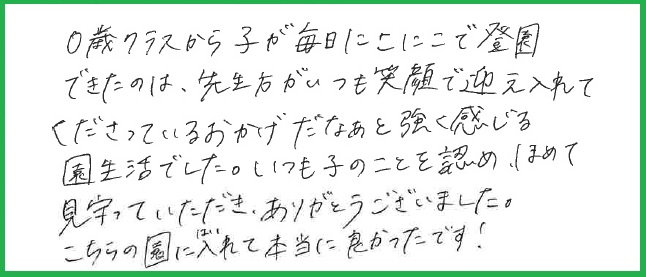 0歳クラスから子が毎日にこにこで登園
できたのは、先生方がいつも笑顔で迎え入れて
くださっているおかげだなぁと強く感じる
園生活でした。いつも子のことを認め、ほめて
見守っていただき、ありがとうございました。
こちらの園に入(はい)れて本当に良かったです!